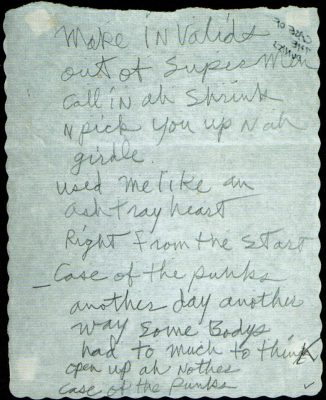 CASE OF
THE
PUNKS
Make inValids
out of Super Men
Call in ah Shrink
n pick You up n ah
girdle.
used me like an
ashtray heart
Right from the start
Case of the punks
another day another
way Some Bodys
had to much to think
open up ah nother
Case of the Punks